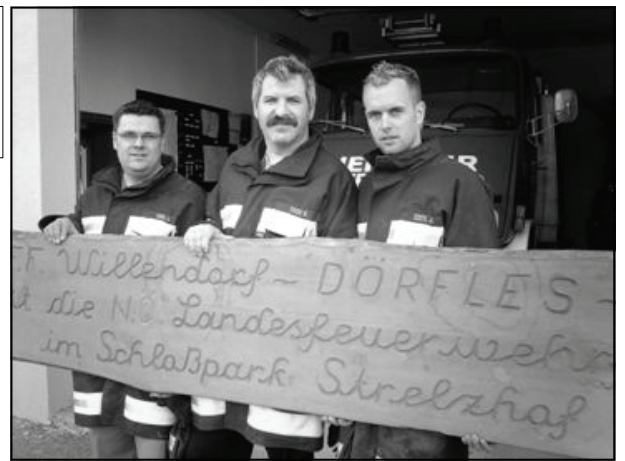 F.F. Willendorf – DÖRFLES –
die N.Ö. Landesfeuerwehr
im Schloßpark Strelzhof